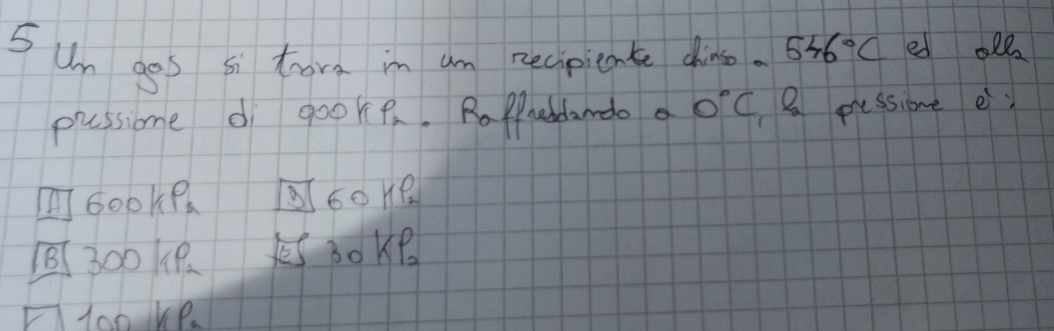 5 Un gas si trova in un recipiente chiuso a 546°C ed alla
pressione di 900 kPa. Raffreddando a 0°C, la pressione è:
A 600 kPa D 60 kPa
B 300 kPa E 30 kPa
100 kPa